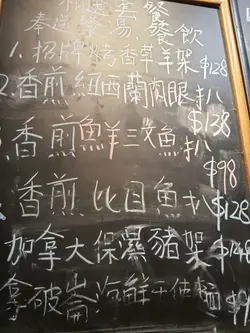 奉送餐湯,餐飲
1. 招牌烤香草羊架 $128
2. 香煎紐西蘭肉眼扒 $138
香煎魚羊三文魚扒 $98
香煎比目魚扒 $128
加拿大保濕豬架 $148
拿破崙海鮮天使麵